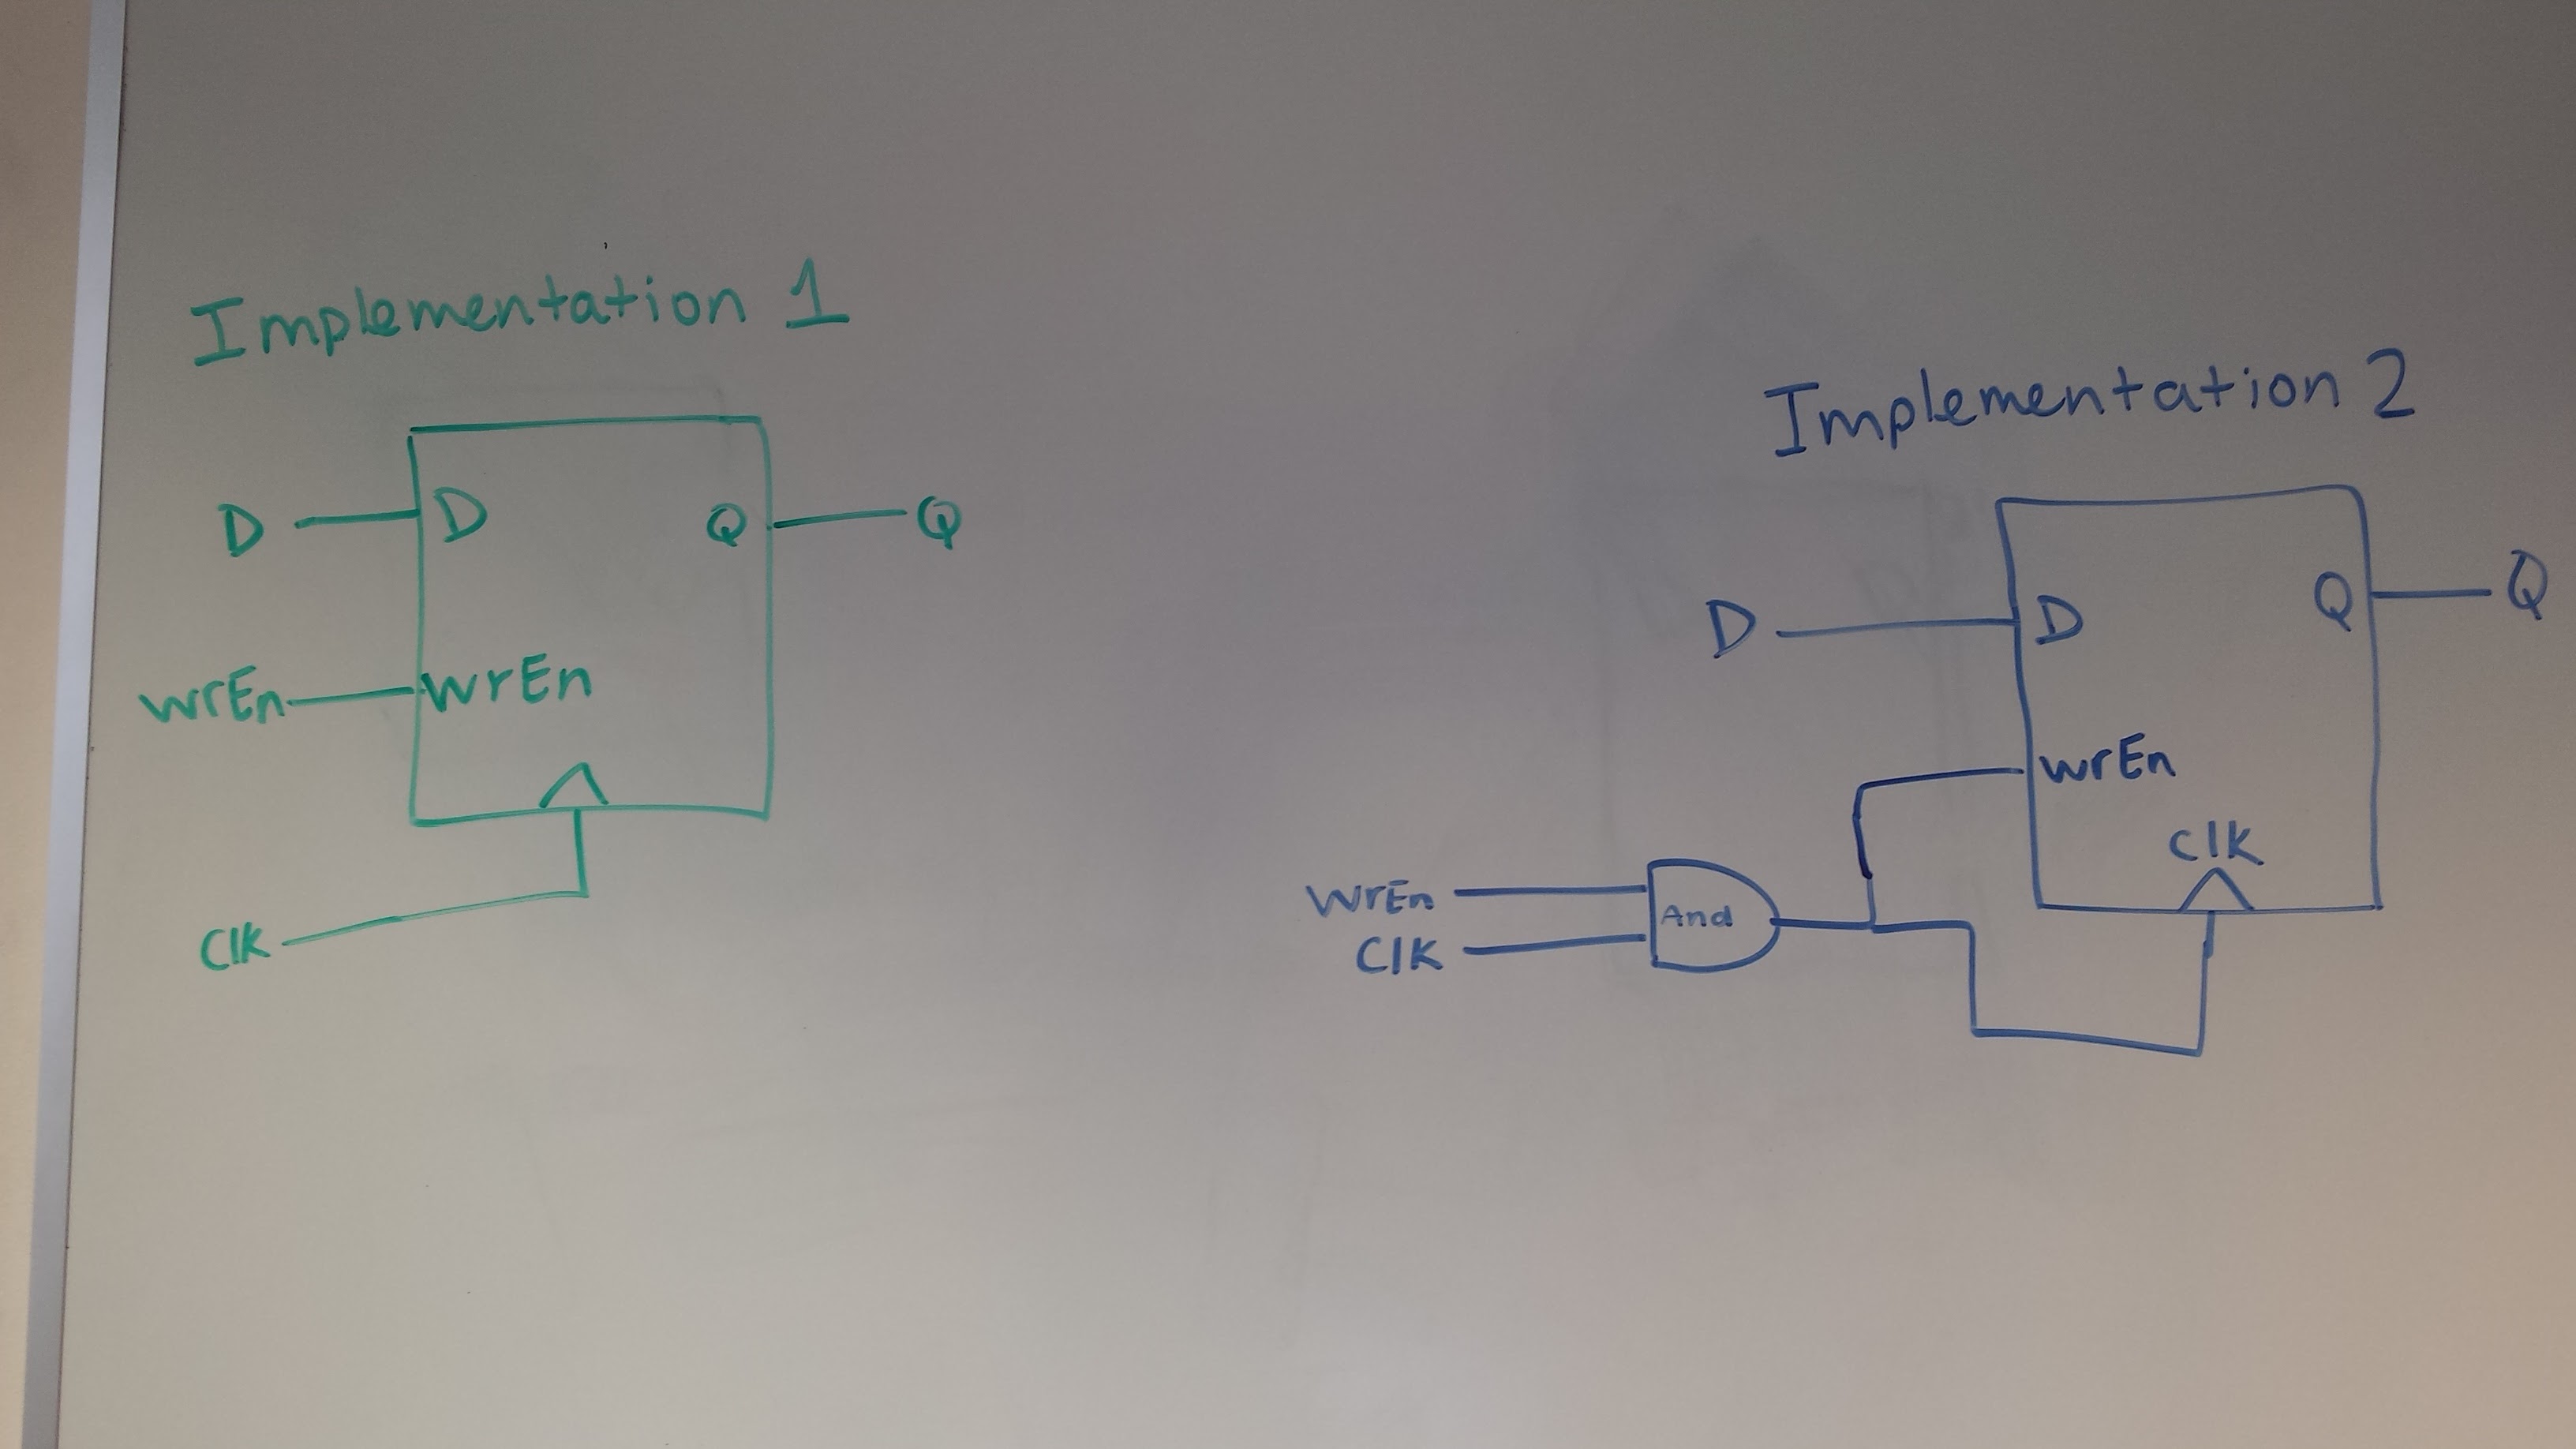 Implementation 1
D
D
Q
Q
WrEn
WrEn
Clk
Implementation 2
D
D
Q
Q
WrEn
Clk
WrEn
And
Clk